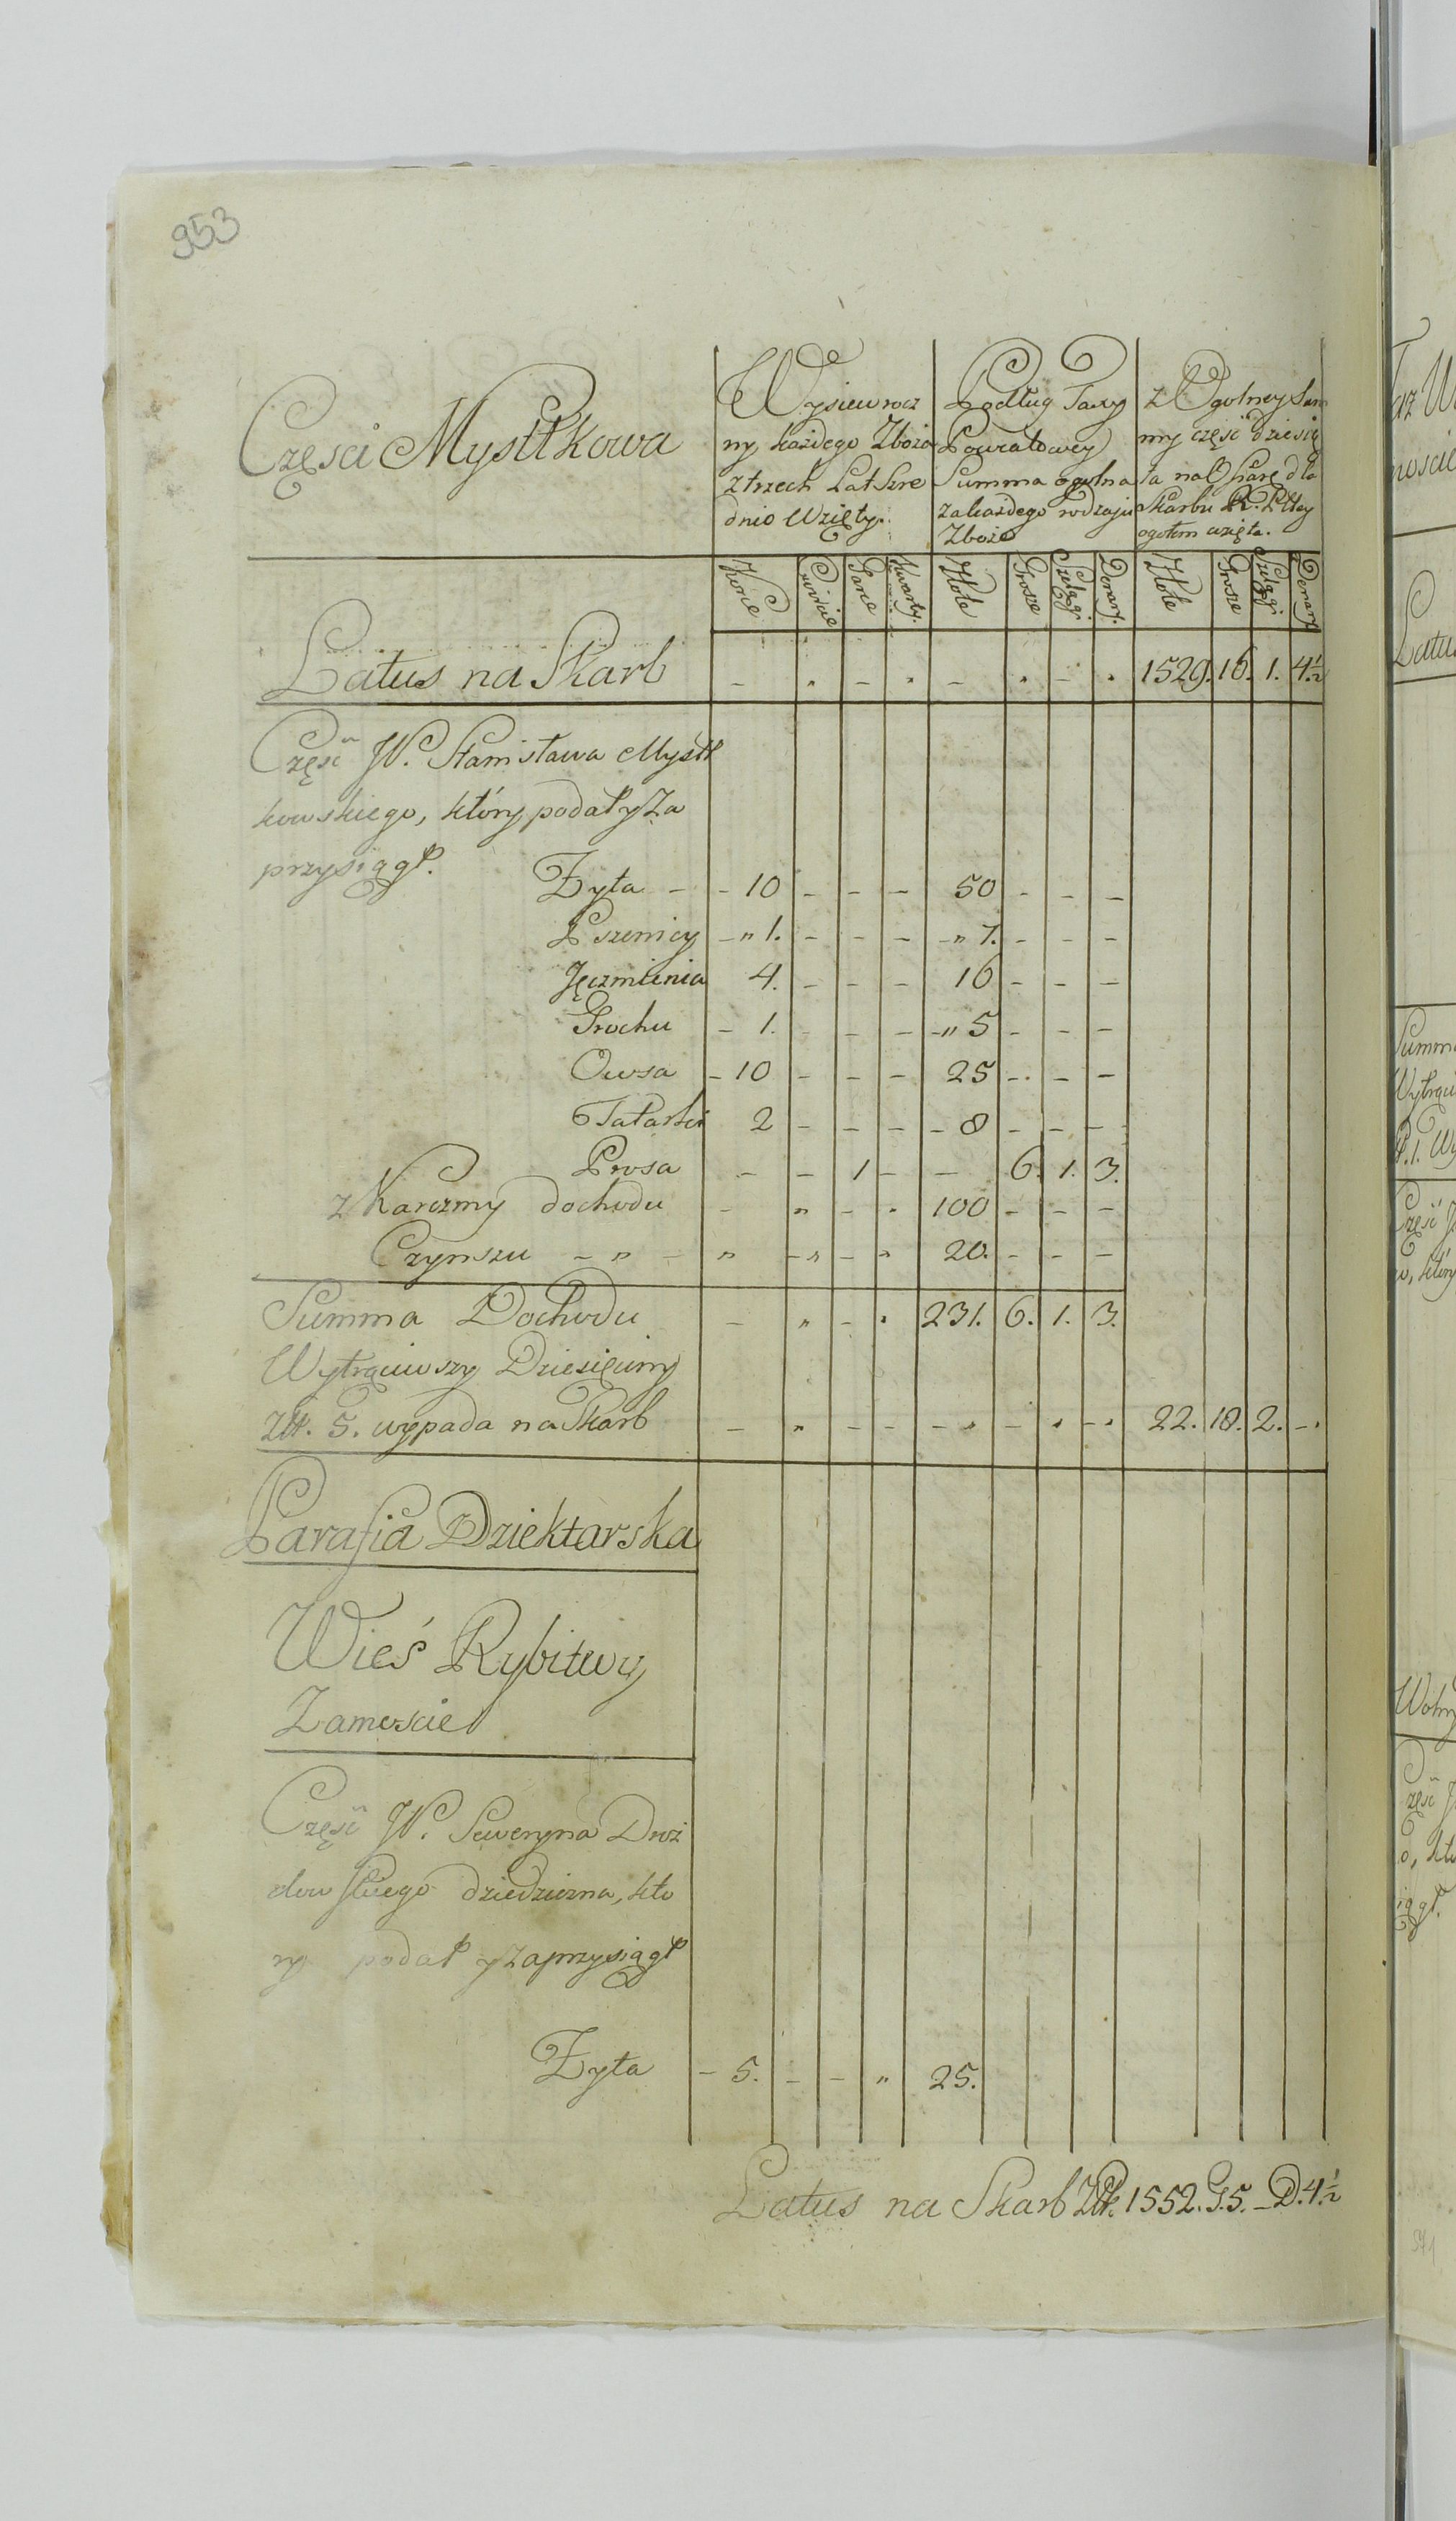 953
Częsci Mystkowa
Wysiew rocz
ny każdego Zboża
z trzech Lat Szre
dnio Wzięty.
Podług Taxy
Powiatowey
Summa ogolna
za każdego rodzaju
Zboże
z Ogolney Sum
my częsć dziesią
ta na Ofiarę dla
Skarbu R. Pltey
ogołem wzięta.
Korce Cwiercie Garce Kwarty. Złote Grosze Szelągi. Denary. Złote Grosze Szelągi. Denary
Latus na Skarb - . - . - . - . 1529. 16. 1. 4.½
Częsć JP. Stanisława Mystk
kowskiego, który podał y Za
przysiągł.
Zyta - - 10 - - - 50 - - -
Pszenicy - " 1. - - - - " 7. - - -
Jęczmienia 4. - - - 16 - - -
Grochu - 1. - - - - " 5 - - -
Owsa - 10 - - - 25 - . - -
Tatarki 2 - - - - 8 - - -
Prosa - - 1 - - 6. 1. 3.
z Karczmy dochodu - " - . 100 - - -
Czynszu - " - " - " - " 20. - - -
Summa Dochodu - " - . 231. 6. 1. 3.
Wytrąciwszy Dziesięciny
Złt. 5. wypada na Skarb - " - - - . - . - . 22. 18. 2. - .
Parafia Dziektarska
Wieś Rybitwy
Zamescie
Częsć JP. Seweryna Droż
dowskiego dziedziczna, któ
ry podał y zaprzysiągł
Zyta - 5. - - " 25.
Latus na Skarb Złt. 1552. G. 5. - D. 4.½